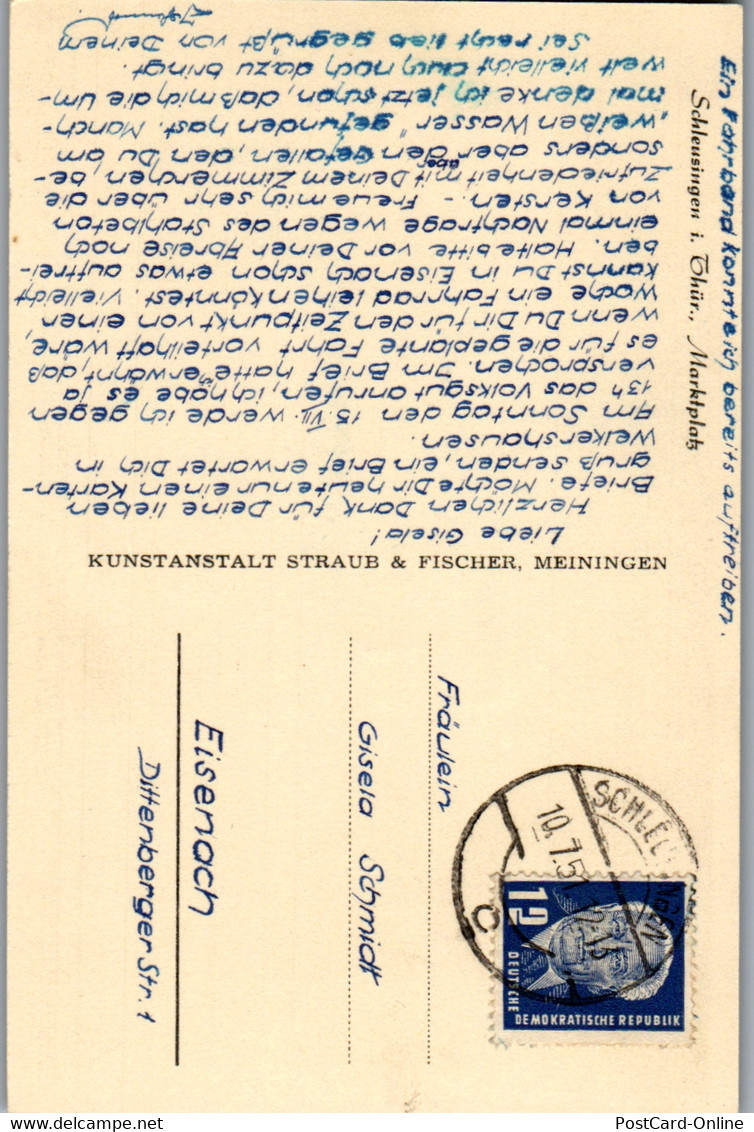 Liebe Gisela!
Herzlichen Dank für Deine lieben
Briefe. Möchte Dir heute nur einen Karten-
gruß senden, ein Brief erwartet Dich in
Welkershausen.
Am Sonntag den 15. VII. werde ich gegen
13h das Volksgut anrufen, ich habe es ja
versprochen. Im Brief hatte erwähnt, daß
es für die geplante Fahrt vorteilhaft wäre,
wenn Du Dir für den Zeitpunkt von einer
Woche ein Fahrrad leihen könntest. Vielleicht
kannst Du in Eisenach schon etwas auftrei-
ben. Halte bitte vor Deiner Abreise noch
einmal Nachfrage wegen des Stahlbeton
von Kersten. - Freue mich sehr über die
Zufriedenheit mit Deinem Zimmerchen, be-
sonders aber den Gefallen, den Du am
„weißen Wasser" gefunden hast. Manch-
mal denke ich jetzt schon, daß mich die Um-
welt vielleicht auch noch dazu bringt.
Sei recht lieb gegrüßt von Deinem
Ein Fahrband konnte ich bereits auftreiben.
Schleusingen i. Thür., Marktplatz
KUNSTANSTALT STRAUB & FISCHER, MEININGEN
Fräulein
Gisela Schmidt
Eisenach
Dittenberger Str. 1
10.7.51
12
DEUTSCHE
DEMOKRATISCHE REPUBLIK
PostCard-Online
PostCard-Online